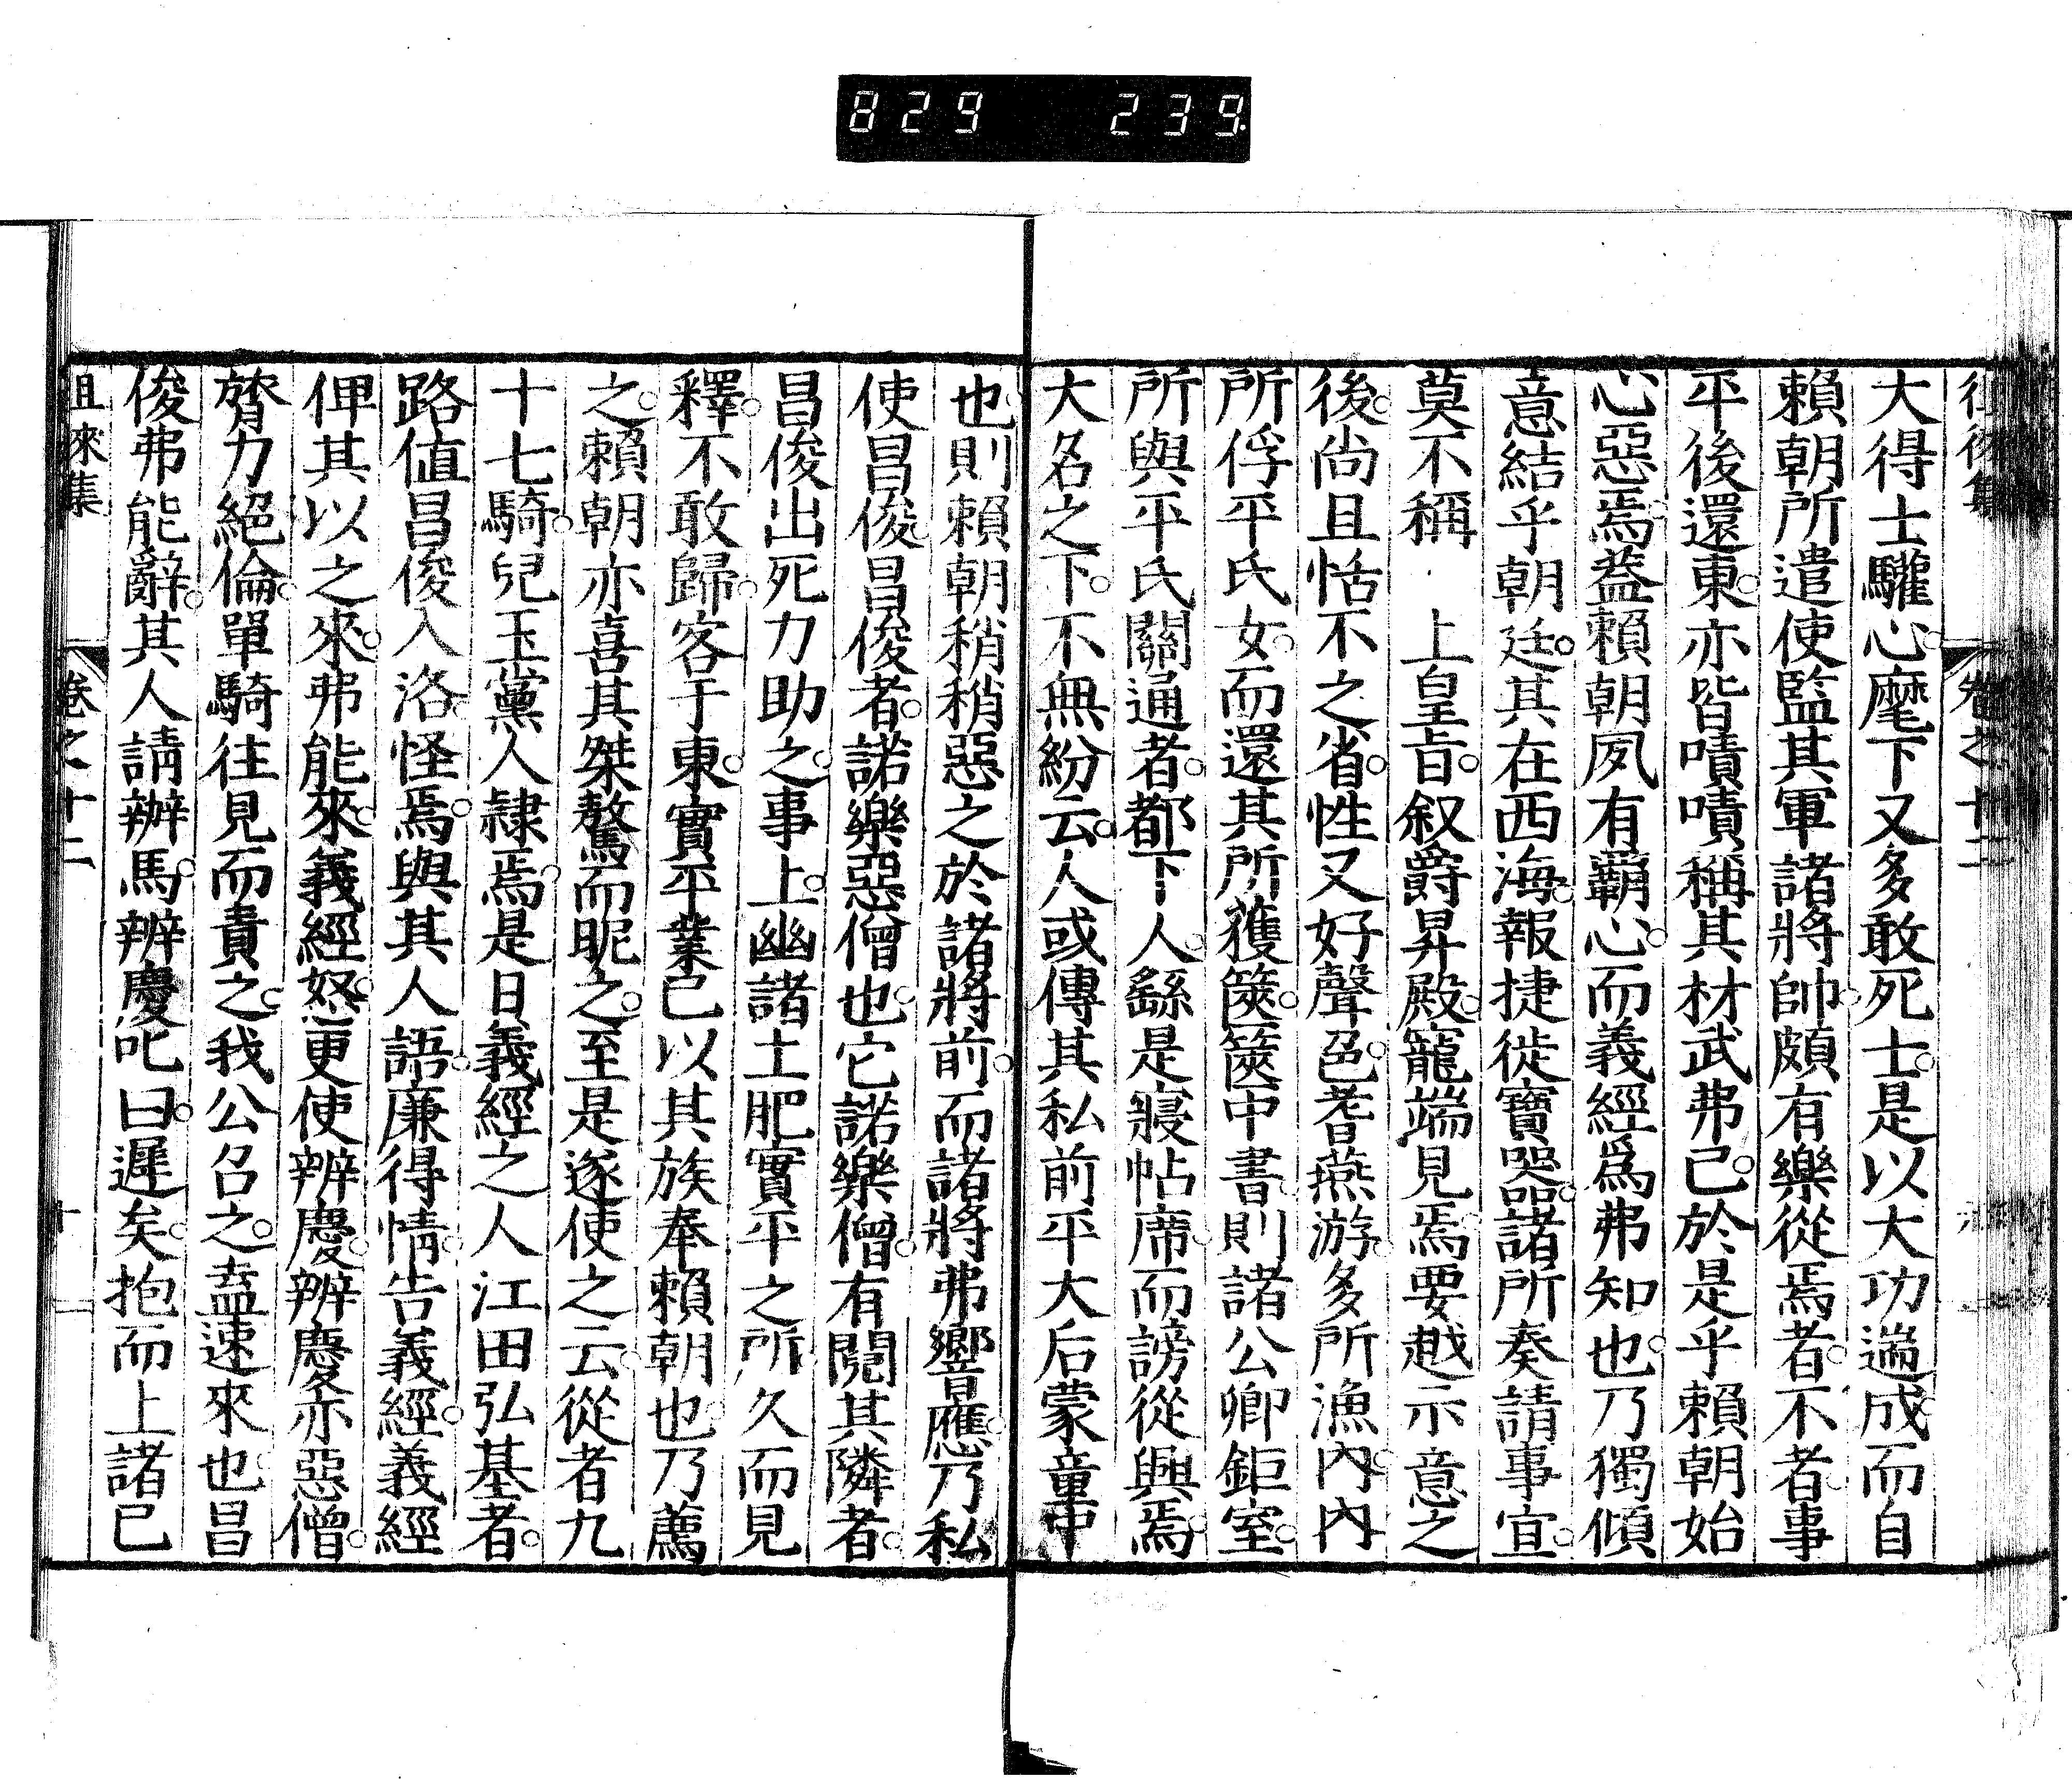 829 239
卷之十二
大得士驩心麾下又多敢死士是以大功遄成而自
賴朝所遣使監其軍諸將帥頗有樂從焉者不者事
平後還東亦皆嘖嘖稱其材武弗已於是乎賴朝始
心惡焉蓋賴朝夙有霸心而義經爲弗知也乃獨傾
意結乎朝廷其在西海報捷徙寶器諸所奏請事宜
莫不稱 上皇㫖叙爵昇殿寵端見焉要越示意之
後尚且恬不之省性又好聲色耆燕游多所漁內內
所俘平氏女而還其所獲篋篋中書則諸公卿鉅室
所與平氏關通者都下人繇是寢帖席而謗從興焉
大名之下不無紛云人或傳其私前平大后蒙童中
也則賴朝稍稍惡之於諸將前而諸將弗響應乃私
使昌俊昌俊者諾樂惡僧也它諾樂僧有鬩其隣者
昌俊出死力助之事上幽諸土肥實平之所久而見
釋不敢歸客于東實平業已以其族奉賴朝也乃薦
之賴朝亦喜其桀驁而昵之至是遂使之云從者九
十七騎兒玉黨人隷焉是日義經之人江田弘基者
路値昌俊入洛怪焉與其人語廉得情告義經義經
俾其以之來弗能來義經怒更使辨慶辨慶亦惡僧
膂力絕倫單騎往見而責之我公召之盍速來也昌
俊弗能辭其人請辦馬辨慶叱曰遲矣抱而上諸已
徂徠集 卷之十二 十一